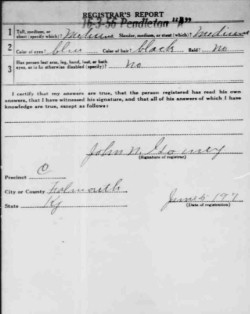 REGISTRAR'S REPORT
16-3-56 Pendleton "A"
1 Tall, medium, or short (specify which)? Medium Slender, medium, or stout (which)? Medium
2 Color of eyes? blue Color of hair? black Bald? No
3 Has person lost arm, leg, hand, foot, or both eyes, or is he otherwise disabled (specify)? No
I certify that my answers are true, that the person registered has read his own answers, that I have witnessed his signature, and that all of his answers of which I have knowledge are true, except as follows:
John N.
(Signature of registrar)
Precinct C
City or County Falmouth
State Ky
June 5 1917
(Date of registration)